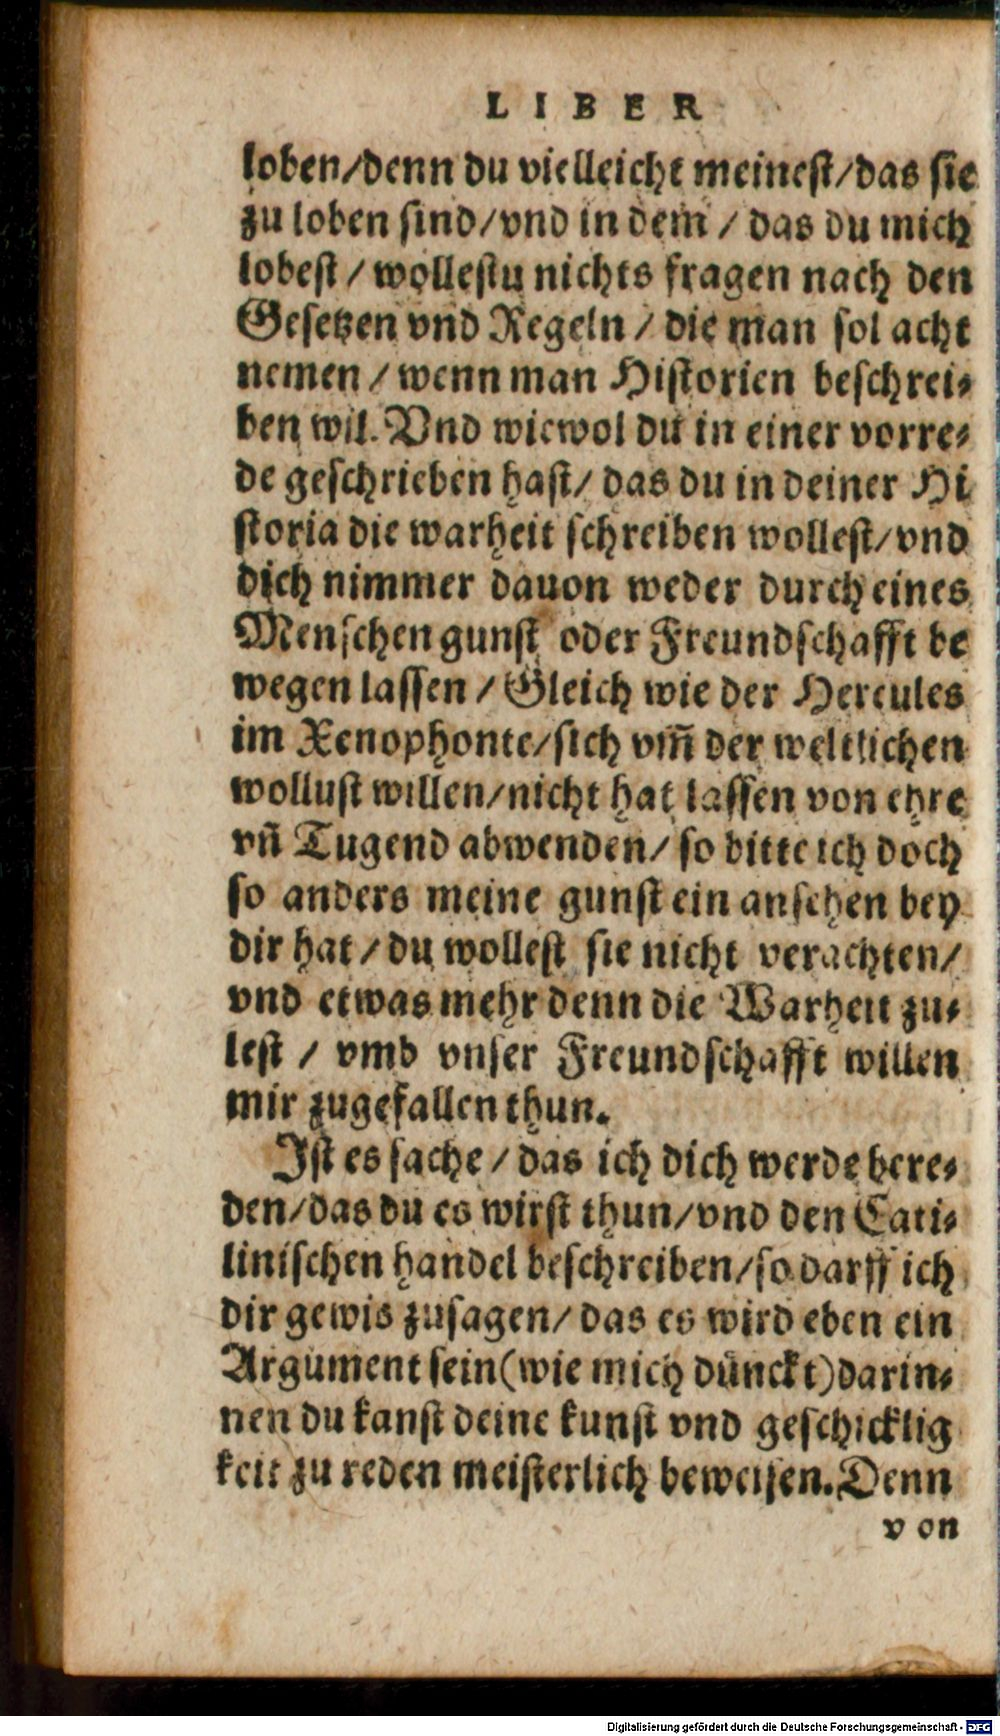 LIBER
loben/denn du vielleicht meinest/das sie
zu loben sind/vnd in dem / das du mich
lobest / wollestu nichts fragen nach den
Gesetzen vnd Regeln / die man sol acht
nemen / wenn man Historien beschrei⸗
ben wil. Vnd wiewol du in einer vorre⸗
de geschrieben hast/ das du in deiner Hi
storia die warheit schreiben wollest/vnd
dich nimmer dauon weder durch eines
Menschen gunst oder Freundschafft be
wegen lassen / Gleich wie der Hercules
im Xenophonte/sich vm̃ der weltlichen
wollust willen/nicht hat lassen von ehre
vñ Tugend abwenden/ so bitte ich doch
so anders meine gunst ein ansehen bey
dir hat / du wollest sie nicht verachten/
vnd etwas mehr denn die Warheit zu⸗
lest / vmb vnser Freundschafft willen
mir zugefallen thun.
Ist es sache / das ich dich werde bere⸗
den/das du es wirst thun/vnd den Cati⸗
linischen handel beschreiben/so darff ich
dir gewis zusagen/ das es wird eben ein
Argument sein(wie mich dünckt)darin⸗
nen du kanst deine kunst vnd geschicklig
keit zu reden meisterlich beweisen. Denn
von
Digitalisierung gefördert durch die Deutsche Forschungsgemeinschaft - DFG